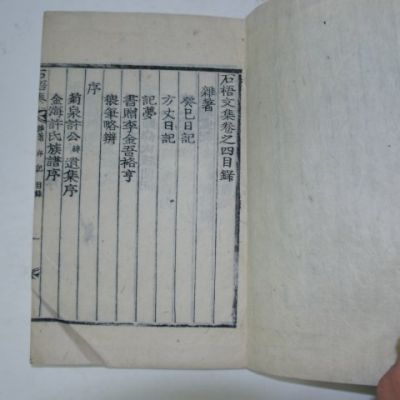 石悟文集卷之四目錄
雜著
癸巳日記
方丈日記
記夢
書贈李金吾裕亨
槃筆略辨
序
菊泉許公 遺集序
金海許氏族譜序
石悟集